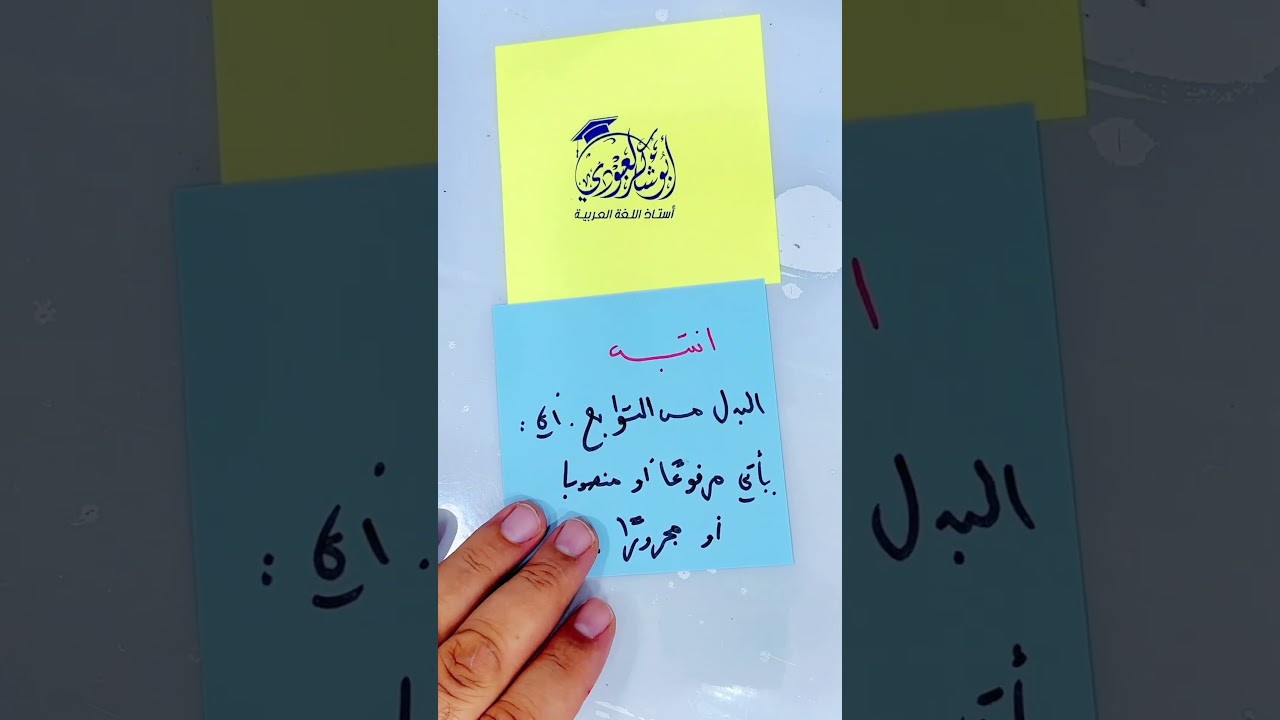 أبو شاكر العبودي
أستاذ اللغة العربية
انتبه
البدل من التوابع . أي :
يأتي مرفوعًا أو منصوبا
أو مجرورًا .